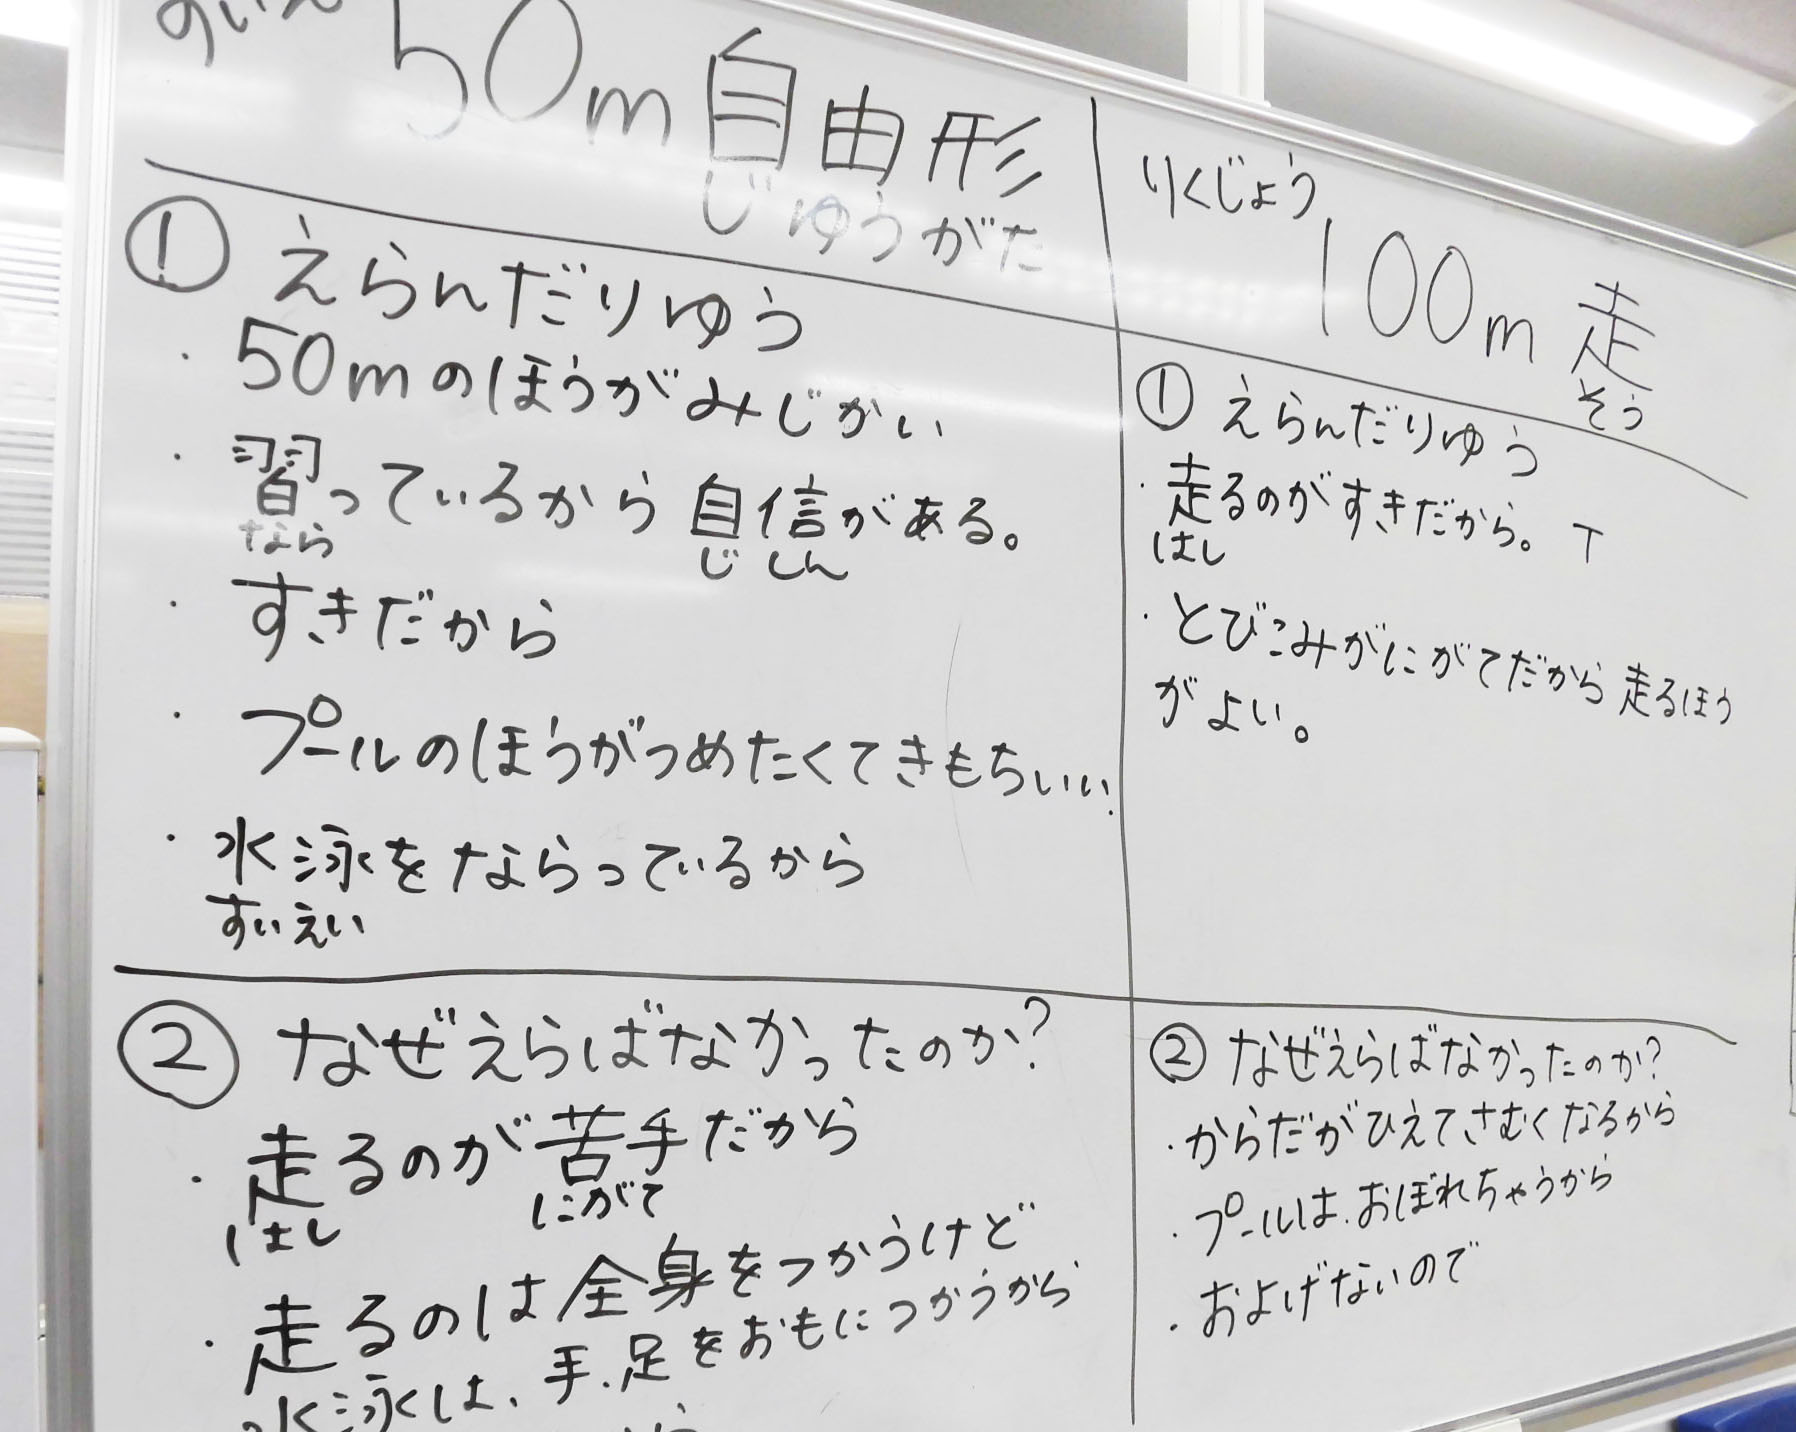 すいえい
50m自由形
じゆうがた
① えらんだりゆう
・50mのほうがみじかい
・習っているから 自信がある。
なら じしん
・すきだから
・プールのほうがつめたくてきもちいい
・水泳をならっているから
すいえい
② なぜえらばなかったのか?
・走るのが苦手だから
はし にがて
・走るのは全身をつかうけど
水泳は、手、足をおもにつかうから
りくじょう
100m走
そう
① えらんだりゆう
・走るのがすきだから。 T
はし
・とびこみがにがてだから 走るほう
がよい。
② なぜえらばなかったのか?
・からだがひえてさむくなるから
・プールは、おぼれちゃうから
・およげないので